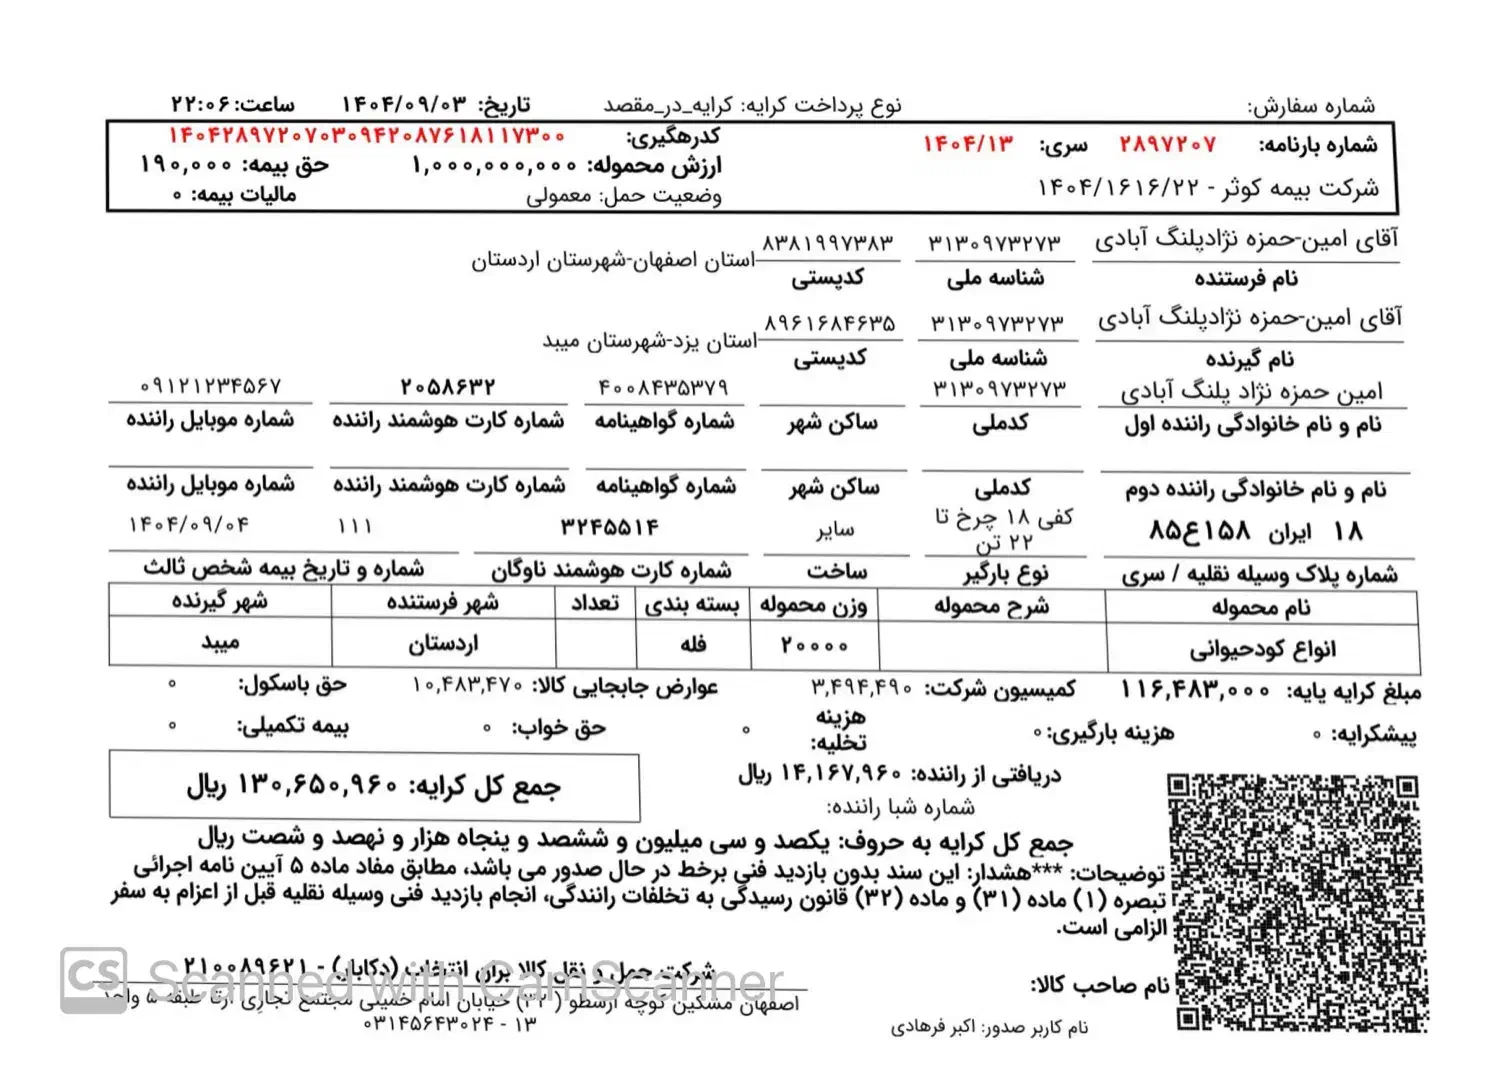 شماره سفارش: نوع پرداخت کرایه: کرایه_در_مقصد تاریخ: ۱۴۰۴/۰۹/۰۳ ساعت: ۲۲:۰۶
شماره بارنامه: ۲۸۹۷۲۰۷ سری: ۱۴۰۴/۱۳ کدرهگیری: ۱۴۰۴۲۸۹۷۲۰۷۰۳۰۹۴۲۰۸۷۶۱۸۱۱۷۳۰۰
ارزش محموله: ۱,۰۰۰,۰۰۰,۰۰۰ حق بیمه: ۱۹۰,۰۰۰
شرکت بیمه کوثر - ۱۴۰۴/۱۶۱۶/۲۲ وضعیت حمل: معمولی مالیات بیمه: ۰
آقای امین-حمزه نژادپلنگ آبادی ۳۱۳۰۹۷۳۲۷۳ ۸۳۸۱۹۹۷۳۸۳ استان اصفهان-شهرستان اردستان
نام فرستنده شناسه ملی کدپستی
آقای امین-حمزه نژادپلنگ آبادی ۳۱۳۰۹۷۳۲۷۳ ۸۹۶۱۶۸۴۶۳۵ استان یزد-شهرستان میبد
نام گیرنده شناسه ملی کدپستی
امین حمزه نژاد پلنگ آبادی ۳۱۳۰۹۷۳۲۷۳ ۴۰۰۸۴۳۵۳۷۹ ۲۰۵۸۶۳۲ ۰۹۱۲۱۲۳۴۵۶۷
نام و نام خانوادگی راننده اول کدملی ساکن شهر شماره گواهینامه شماره کارت هوشمند راننده شماره موبایل راننده
نام و نام خانوادگی راننده دوم کدملی ساکن شهر شماره گواهینامه شماره کارت هوشمند راننده شماره موبایل راننده
۱۸ ایران ۱۵۸ع۸۵ کفی ۱۸ چرخ تا سایر ۳۲۴۵۵۱۴ ۱۱۱ ۱۴۰۴/۰۹/۰۴
۲۲ تن
شماره پلاک وسیله نقلیه / سری نوع بارگیر ساخت شماره کارت هوشمند ناوگان شماره و تاریخ بیمه شخص ثالث
نام محموله شرح محموله وزن محموله بسته بندی تعداد شهر فرستنده شهر گیرنده
انواع کودحیوانی ۲۰۰۰۰ فله اردستان میبد
مبلغ کرایه پایه: ۱۱۶,۴۸۳,۰۰۰ کمیسیون شرکت: ۳,۴۹۴,۴۹۰ عوارض جابجایی کالا: ۱۰,۴۸۳,۴۷۰ حق باسکول: ۰
پیشکرایه: ۰ هزینه بارگیری: ۰ هزینه تخلیه: ۰ حق خواب: ۰ بیمه تکمیلی: ۰
دریافتی از راننده: ۱۴,۱۶۷,۹۶۰ ریال جمع کل کرایه: ۱۳۰,۶۵۰,۹۶۰ ریال
شماره شبا راننده:
جمع کل کرایه به حروف: یکصد و سی میلیون و ششصد و پنجاه هزار و نهصد و شصت ریال
توضیحات: ***هشدار: این سند بدون بازدید فنی برخط در حال صدور می باشد، مطابق مفاد ماده ۵ آیین نامه اجرائی
تبصره (۱) ماده (۳۱) و ماده (۳۲) قانون رسیدگی به تخلفات رانندگی، انجام بازدید فنی وسیله نقلیه قبل از اعزام به سفر
الزامی است.
نام صاحب کالا: شرکت حمل و نقل کالا برای انتخاب (دکابار) - ۲۱۰۰۸۹۶۲۱
اصفهان مشکین کوچه ارسطو (۳۲) خیابان امام خمینی مجتمع تجاری طبقه ۵ واحد
۱۳ - ۰۳۱۴۵۶۴۳۰۲۴
نام کاربر صدور: اکبر فرهادی
CS Scanned with CamScanner